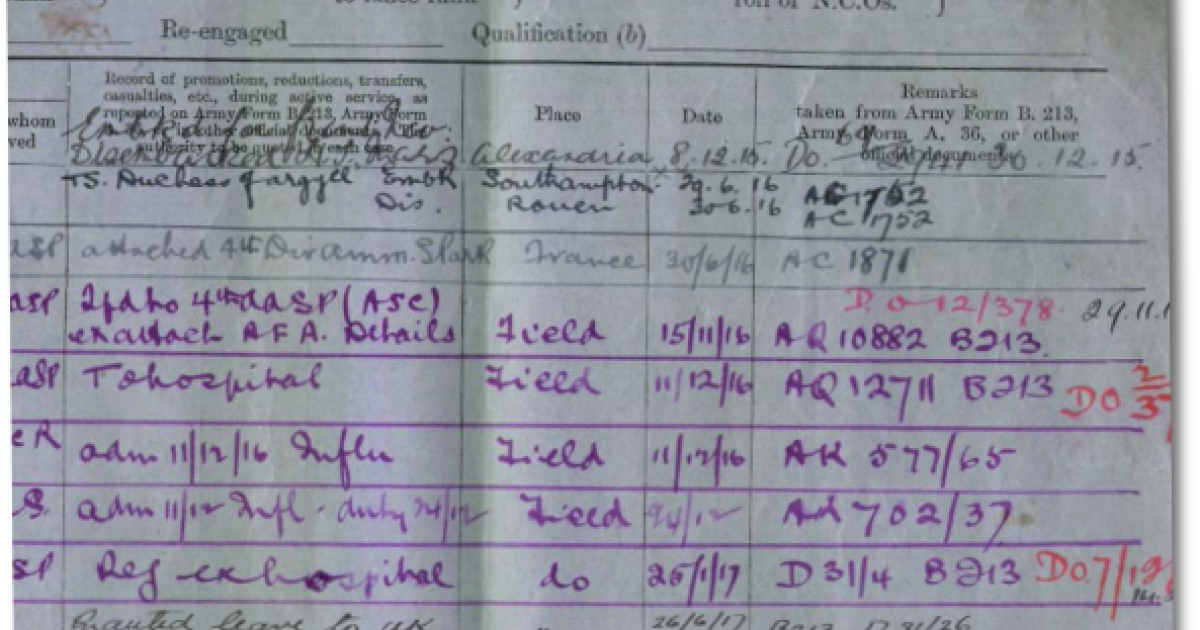 to lance rank ) roll of N.C.Os. )
Re-engaged Qualification (b)
whom
ved
Record of promotions, reductions, transfers,
casualties, etc., during active service, as
reported on Army Form B. 213, Army Form
A. 36, or in other official documents. The
authority to be quoted in each case.
Place
Date
Remarks
taken from Army Form B. 213,
Army Form A. 36, or other
official documents.
Disembarked Alexandria 8.12.15. Do. 30.12.15.
TS. Duchess of argyll Embk Southampton. 29.6.16 AC 1752
Dis. Rouen 30.6.16 AC 1752
ASP attached 4th Div amm. France 30/6/16 AC 1871
D.O-12/378. 29.11.1
ASP 4th AASP (ASC)
AFA. Details Field 15/11/16 AQ 10882 B213.
ASP To hospital Field 11/12/16 AQ 12711 B213 DO 2/3
e R adm 11/12/16 Influ Field 11/12/16 AK 577/65
S. adm 11/12 Infl - duty 24/12 Field 24/12 702/37
SP Rej ex hospital do 25/1/17 D 31/4 B213 DO 7/
Granted leave to UK 26/6/17